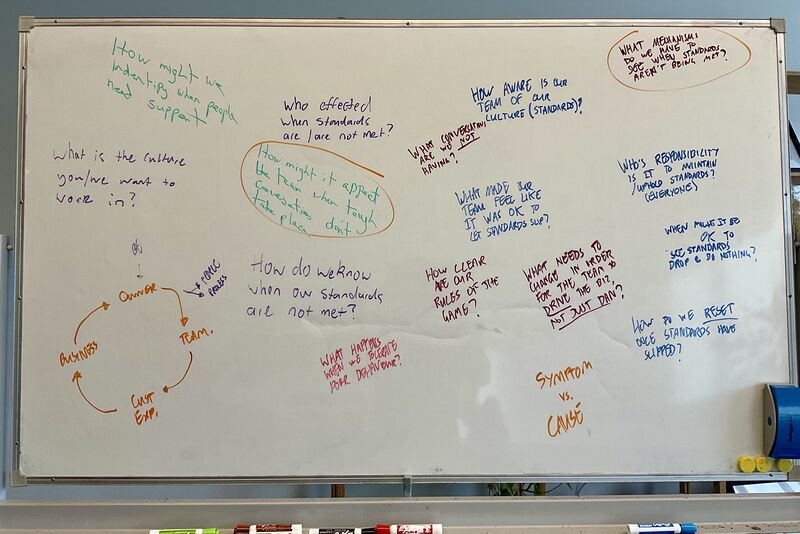 How might we
indentify when people
need support
who effected
when standards
are / are not met?
HOW AWARE IS OUR
TEAM OF OUR
CULTURE (STANDARDS)?
WHAT MECHANISMS
DO WE HAVE TO
SEE WHEN STANDARDS
AREN'T BEING MET?
What is the culture
you/we want to
work in?
How might it affect
the team when tough
conversations don't
take place
WHAT CONVERSATIONS
ARE WE NOT
HAVING?
WHAT MADE OUR
TEAM FEEL LIKE
IT WAS OK TO
LET STANDARDS SLIP?
WHO'S RESPONSIBILITY
IS IT TO MAINTAIN
/UPHOLD STANDARDS?
(EVERYONE)
WHEN MIGHT IT BE
OK TO
SEE STANDARDS
DROP & DO NOTHING?
OWNER
PEOPLE
PROCESS
TEAM.
CUST
EXP.
BUSINESS
How do we know
when our standards
are not met?
HOW CLEAR
ARE OUR
RULES OF THE
GAME?
WHAT NEEDS TO
CHANGE IN ORDER
FOR THE TEAM TO
DRIVE THE BIZ,
NOT JUST DAN?
HOW DO WE RESET
ONCE STANDARDS HAVE
SLIPPED?
WHAT HAPPENS
WHEN WE TOLERATE
POOR BEHAVIOUR?
SYMPTOM
vs.
CAUSE